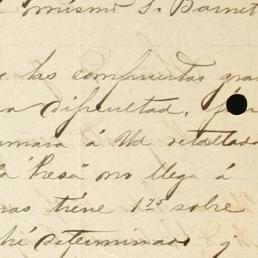 mismo S. Barnet
las compuertas gra
dificultad,
mara á Ud detallada
"Presa" no llega á
ras tiene 1.75 sobre
hé determinado q